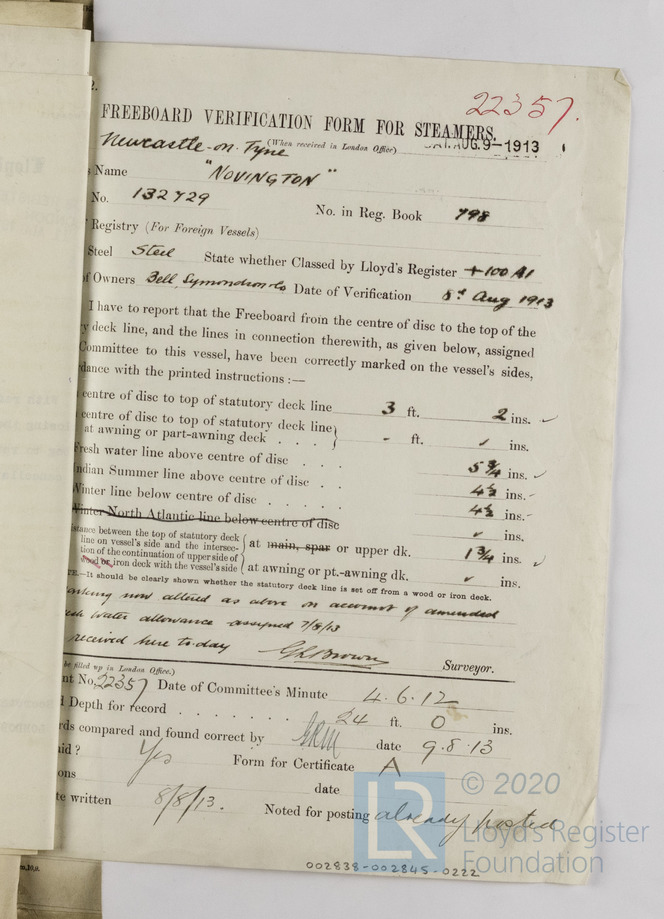 2.
22357.
FREEBOARD VERIFICATION FORM FOR STEAMERS.
Newcastle-on-Tyne (When received in London Office) SAT. AUG. 9-1913
s Name "NOVINGTON"
No. 132729
No. in Reg. Book 798
Registry (For Foreign Vessels)
Steel Steel State whether Classed by Lloyd's Register +100 A1
of Owners Bell, Symondson & Co Date of Verification 8th Aug 1913
I have to report that the Freeboard from the centre of disc to the top of the
y deck line, and the lines in connection therewith, as given below, assigned
Committee to this vessel, have been correctly marked on the vessel's sides,
dance with the printed instructions :—
centre of disc to top of statutory deck line 3 ft. 2 ins. ✓
centre of disc to top of statutory deck line
at awning or part-awning deck . . . } - ft. ✓ ins.
Fresh water line above centre of disc . . . 5 3/4 ins. ✓
Indian Summer line above centre of disc . . 4 1/2 ins. -
Winter line below centre of disc . . . . 4 1/2 ins. -
Winter North Atlantic line below centre of disc ✓ ins.
istance between the top of statutory deck
line on vessel's side and the intersec-
tion of the continuation of upper side of
wood or iron deck with the vessel's side
{ at main, spar or upper dk. 1 3/4 ins. ✓
{ at awning or pt.-awning dk. ✓ ins.
TE.—It should be clearly shown whether the statutory deck line is set off from a wood or iron deck.
marking now altered as above on account of amended
fresh water allowance assigned 7/8/13
received here to-day G L Brown Surveyor.
be filled up in London Office.)
nt No. 22357 Date of Committee's Minute 4.6.12
d Depth for record . . . . . . . 24 ft. 0 ins.
rds compared and found correct by date 9.8.13
aid ? Yes Form for Certificate A
ions date
te written 8/8/13. Noted for posting already posted
© 2020
LR
Lloyd's Register
Foundation
002838-002845-0222